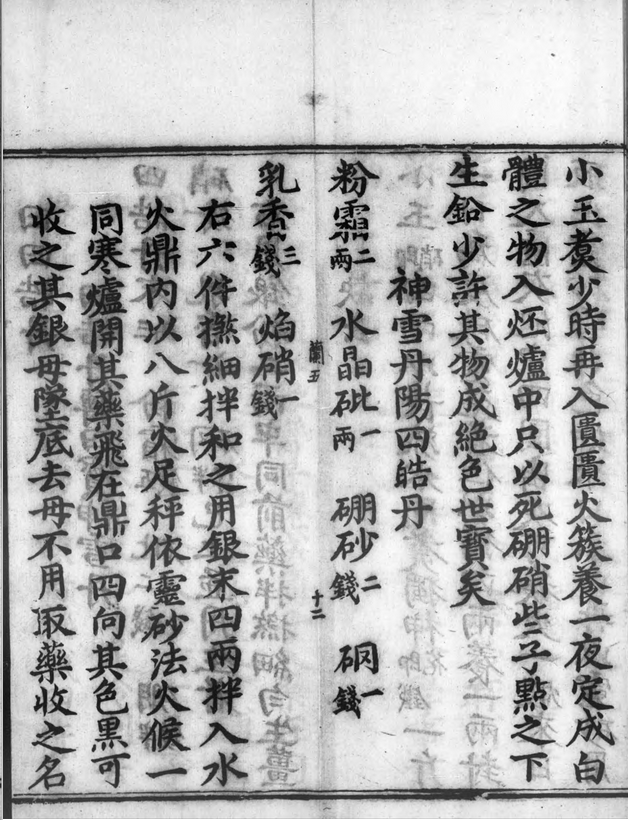 小玉煑少時再入匱匱火簇養一夜定成白
體之物入炋爐中只以死硼硝些子點之下
生鉛少許其物成絕色世寶矣
神雪丹陽四皓丹
粉霜二兩 水晶砒一兩 硼砂二錢 硇一錢
蘭五 十二
乳香三錢 焰硝一錢
右六件撫細拌和之用銀末四兩拌入水
火鼎内以八斤火足秤依靈砂法火候一
同寒爐開其藥飛在鼎口四向其色黑可
收之其銀母墜底去母不用取藥收之名